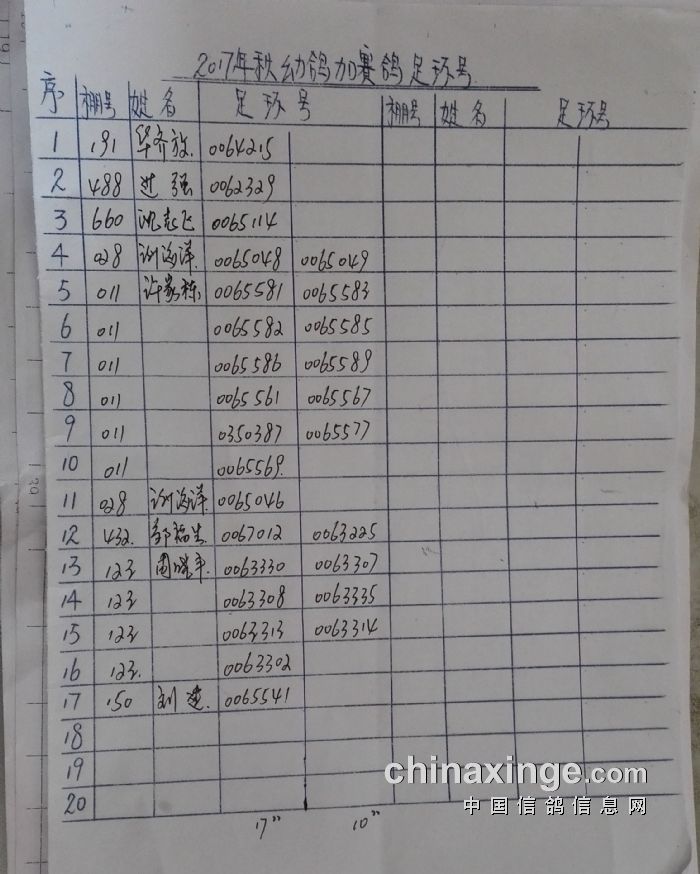 2017年秋幼鸽加赛鸽足环号
序 棚号 姓名 足环号 棚号 姓名 足环号
1 191 华齐放 0064215
2 488 过强 0062329
3 660 沈志飞 0065114
4 028 海洋 0065048 0065049
5 011 许家栋 0065581 0065583
6 011 0065582 0065585
7 011 0065586 0065589
8 011 0065561 0065567
9 011 0350387 0065577
10 011 0065569
11 028 海洋 0065046
12 432 邹福生 0067012 0063225
13 123 周晓平 0063330 0063307
14 123 0063308 0063335
15 123 0063313 0063314
16 123 0063302
17 150 刘建 0065541
18
19
20
17" 10"
chinaxinge.com
中国信鸽信息网